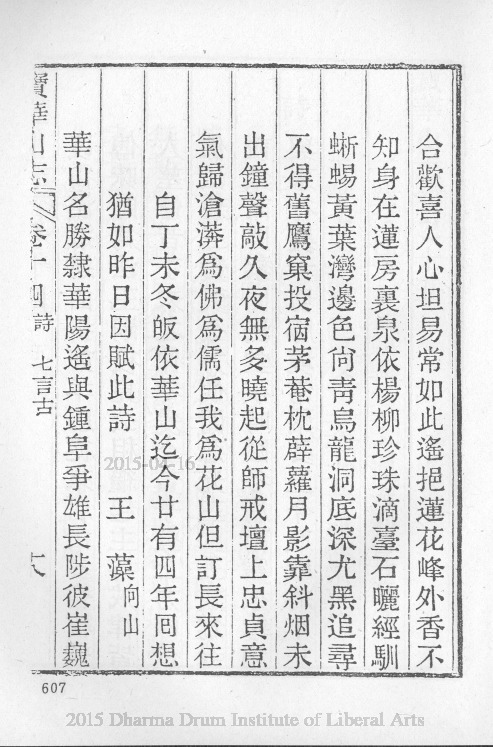 合歡喜人心坦易常如此遙挹蓮花峰外香不
知身在蓮房裏泉依楊柳珍珠滴臺石曬經馴
蜥蜴黃葉灣邊色尙靑烏龍洞底深尤黑追尋
不得舊鷹窠投宿茅菴枕薜蘿月影靠斜烟未
出鐘聲敲久夜無多曉起從師戒壇上忠貞意
氣歸滄漭爲佛爲儒任我爲花山但訂長來往
自丁未冬皈依華山迄今廿有四年囘想
猶如昨日因賦此詩 王藻向山
華山名勝隸華陽遙與鍾阜爭雄長陟彼崔巍
寶華山志 卷十四 詩 七言古 六
607
2015-04-16
2015 Dharma Drum Institute of Liberal Arts